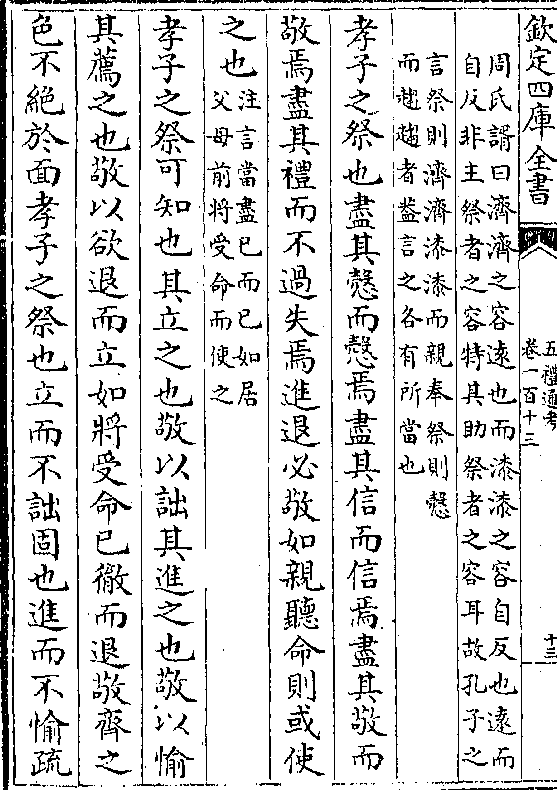 欽定四庫全書
五禮通考
卷一百十三
十三
周氏諝曰濟濟之容遠也而漆漆之容自反也遠而
自反非主祭者之容特其助祭者之容耳故孔子之
言祭則濟濟漆漆而親奉祭則慤
而趨趨者蓋言之各有所當也
孝子之祭也盡其慤而慤焉盡其信而信焉盡其敬而
敬焉盡其禮而不過失焉進退必敬如親聽命則或使
之也
注言當盡已而已如居
父母前將受命而使之
孝子之祭可知也其立之也敬以詘其進之也敬以愉
其薦之也敬以欲退而立如將受命已徹而退敬齊之
色不絕於面孝子之祭也立而不詘固也進而不愉疏